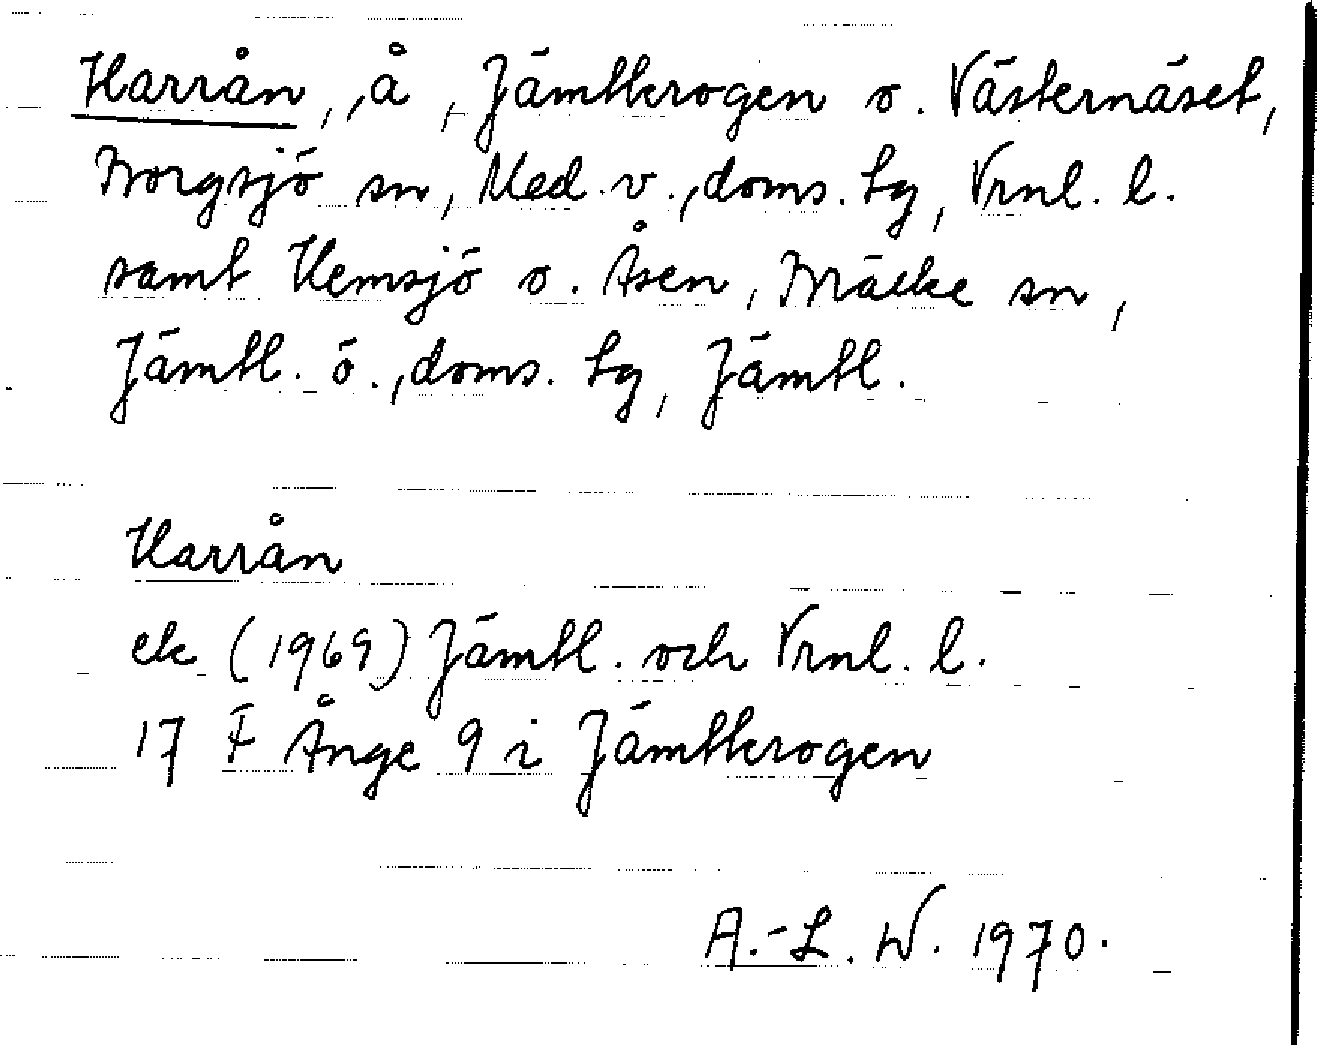 Harrån, å, Jämtkrogen o. Västernäset,
Borgsjö sn, Med. v., doms. tg, Vrnl. l.
samt Hemsjö o. Åsen, Bräcke sn,
Jämtl. ö., doms. tg, Jämtl.
Harrån
ek (1969) Jämtl. och Vrnl. l.
17 F Ånge 9 i Jämtkrogen
A.-L. W. 1970.